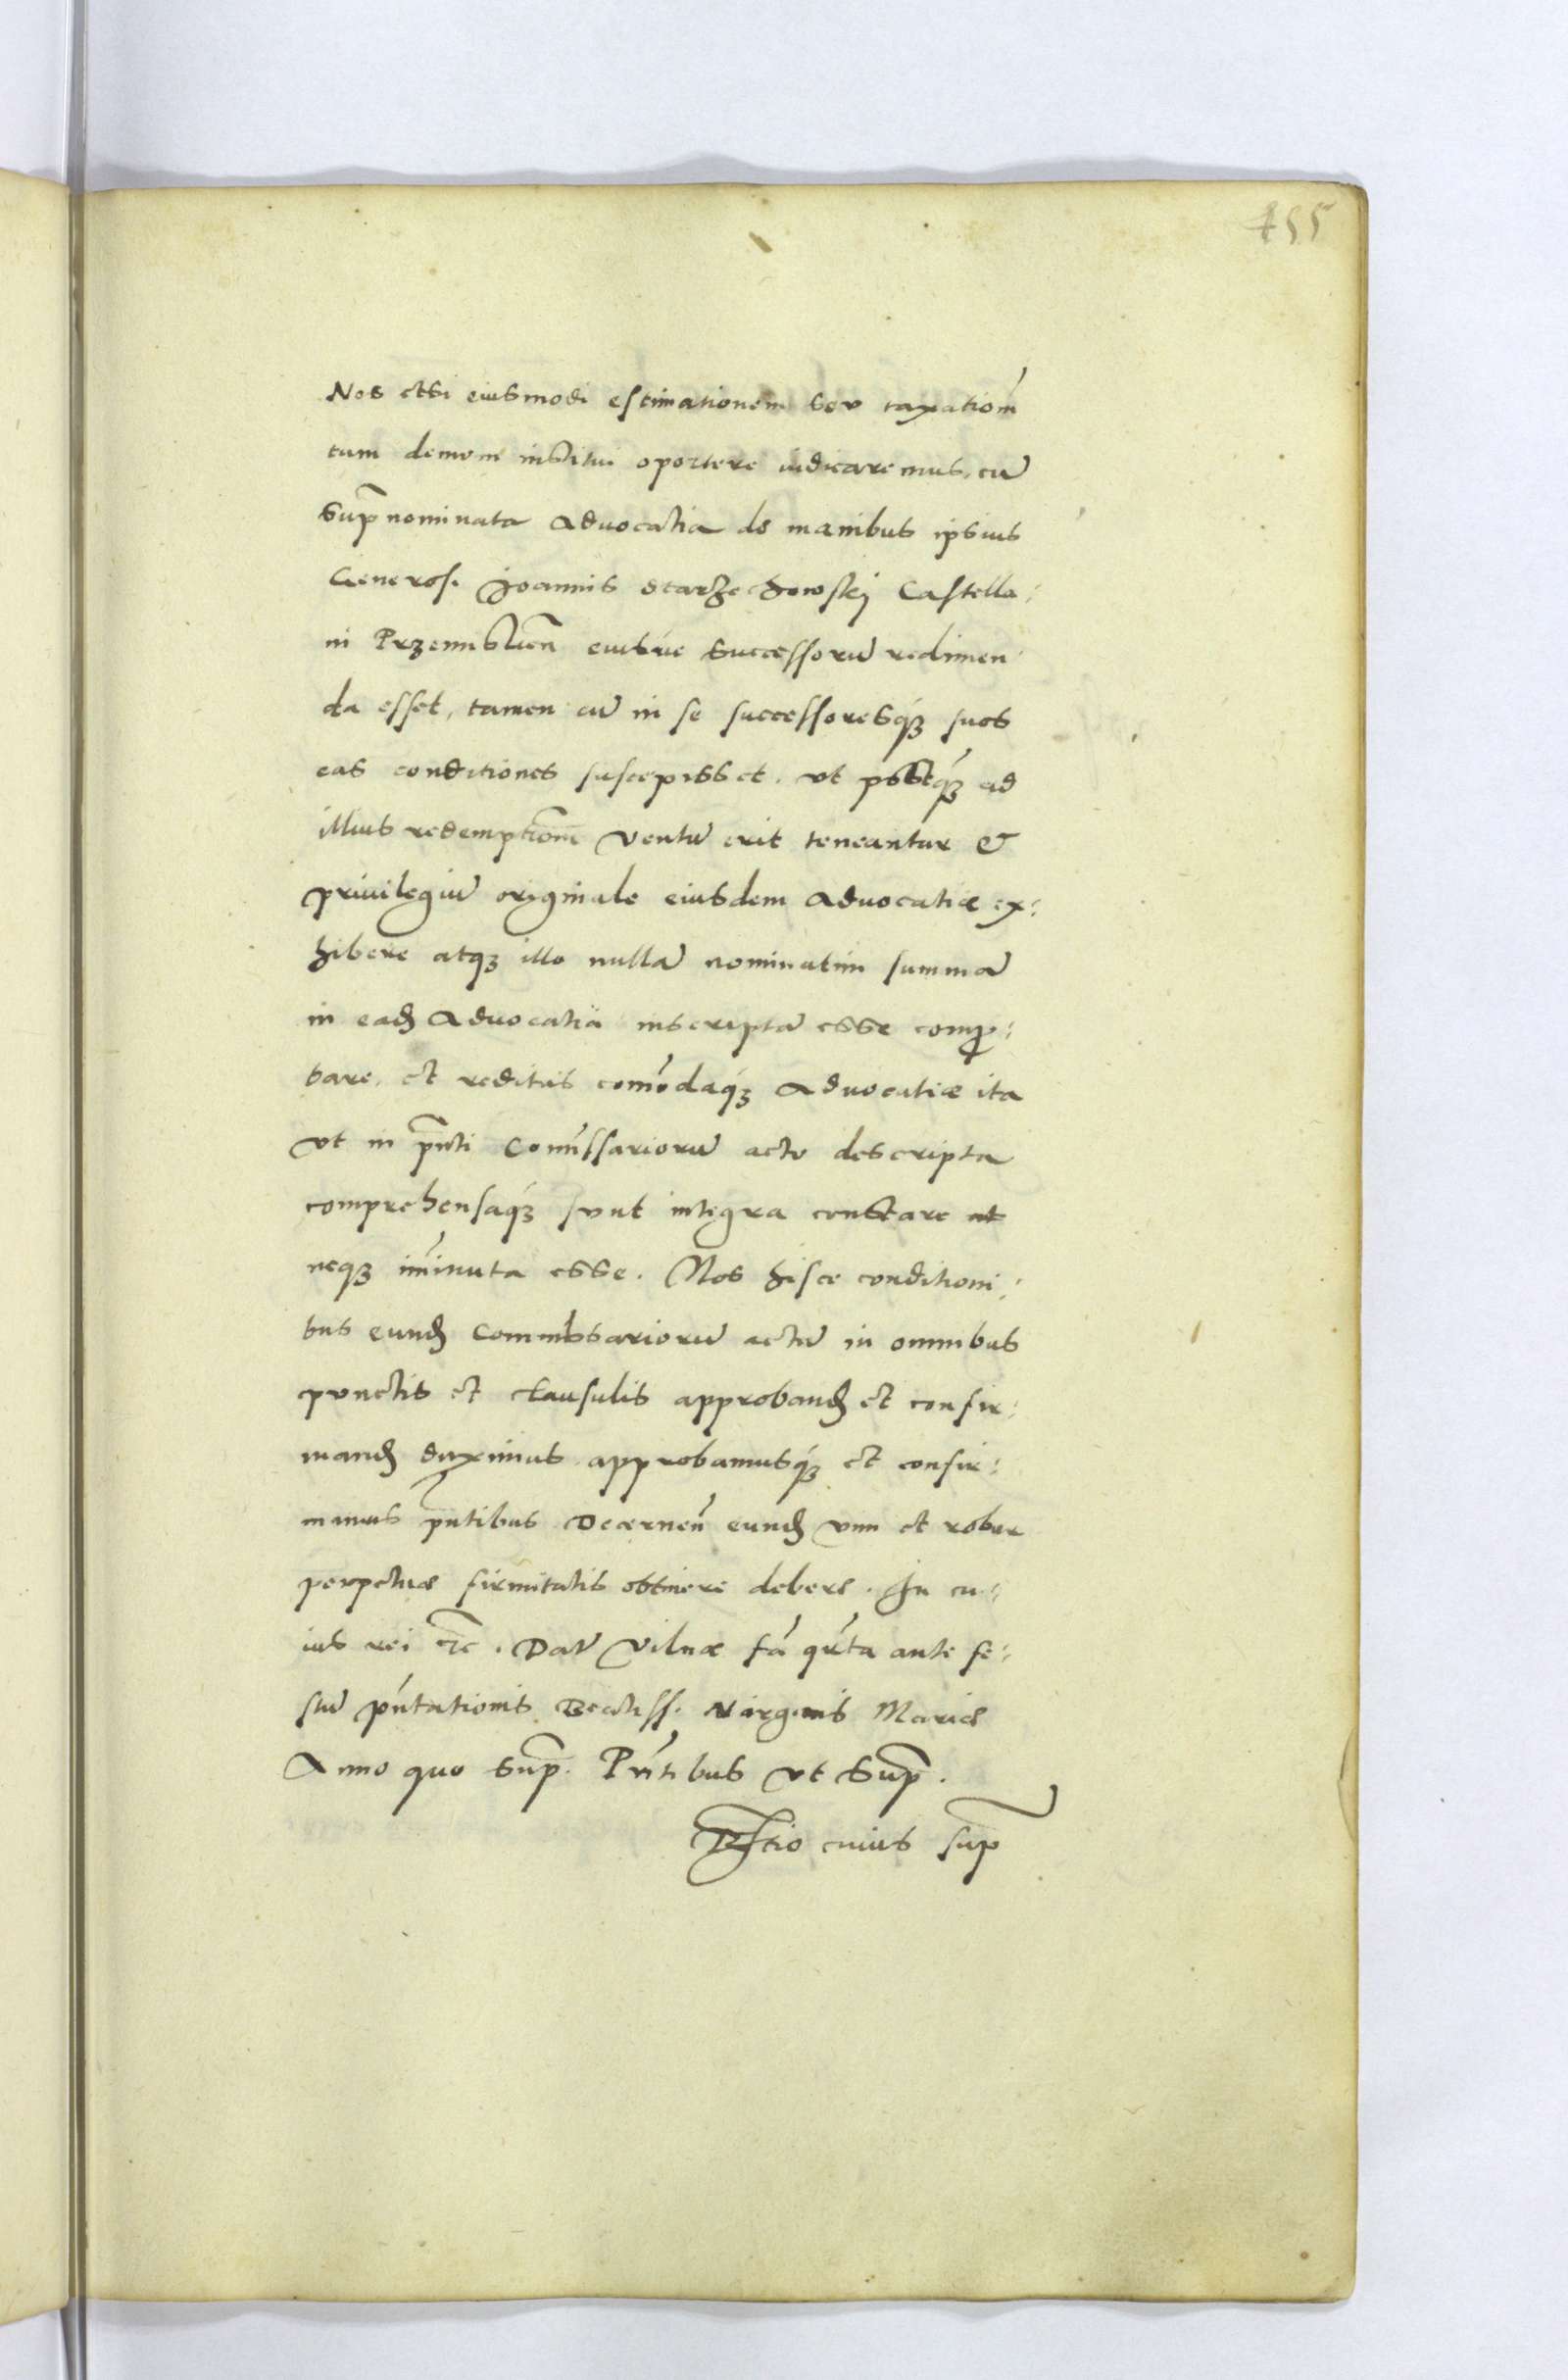 455
Nos etsi eiusmodi estimationem seu taxatiom̃
tum demum institui oportere iudicaremus, cũ
sup̃nominata Aduocatia de manibus ipsius
Generos. Joannis Starzechowskj Castella:
ni Przemislieñ eiusue successorũ redimen
da esset, tamen cũ in se successoresq́ꝫ suos
eas conditiones suscepisset. vt ad
illius redemptiom̃ ventũ erit teneantur &
priuilegiũ originale eiusdem Aduocatiæ ex:
hibere atqꝫ illo nullã nominatim summã
in eadꝫ Aduocatia inscriptã esse comꝓ:
bare, et reditus com̃odaq́ꝫ Aduocatiæ ita
vt in pñti Com̃issariorũ actu descripta
comprehensaq́ꝫ sunt integra constare
neqꝫ im̃inuta esse. Nos hisce conditioni:
bus eundꝫ Commissariorũ actũ in omnibus
punctis et clausulis approbandꝫ et confir:
mandꝫ duximus approbamusq́ꝫ et confir:
mamus pñtibus Decerneñ eundꝫ vim et robur
perpetuæ firmitatis obtinere debere. In cu:
ius rei etc̃. Dat̃ Vilnæ fã qr̃ta ante fe:
stũ pñtationis Beatiss. Virginis Mariæ
Anno quo sup̃. Pñtibus vt sup̃.
Rl̃tio cuius sup̃